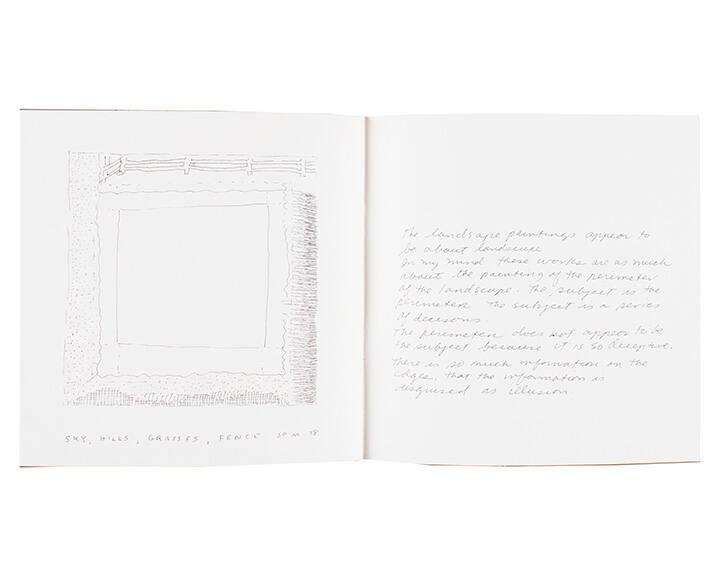 SKY, HILLS, GRASSES, FENCE
The landscape paintings appear to
be about landscape
In my mind these works are as much
about the painting of the perimeter
of the landscape. The subject is the
perimeter. The subject is a series
of decisons.
The perimeter does not appear to be
the subject because it is so deceptive.
There is so much information on the
edges, that the information is
disguised as illusion